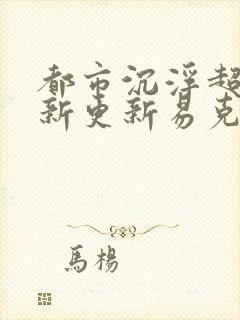 都市沉浮超
新更新易克
馬楊